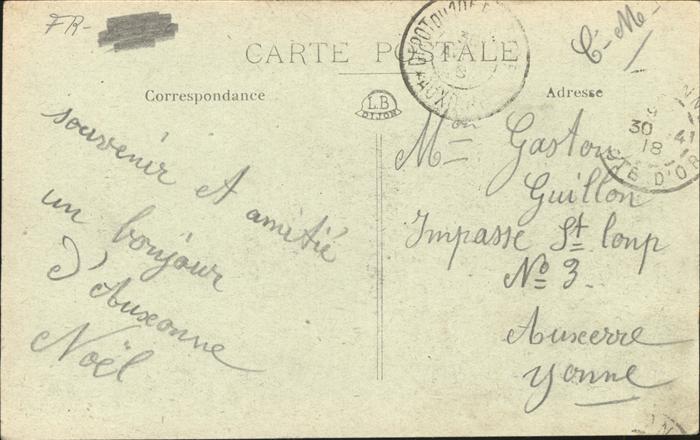 FR-
CARTE POSTALE
C-M-
Correspondance
LB
DIJON
Adresse
souvenir et amitié
un bonjour
d'Auxonne
Noël
Mon Gaston
Guillon
Impasse St loup
No 3.
Auxerre
Yonne
30
18
41
CÔTE D'OR